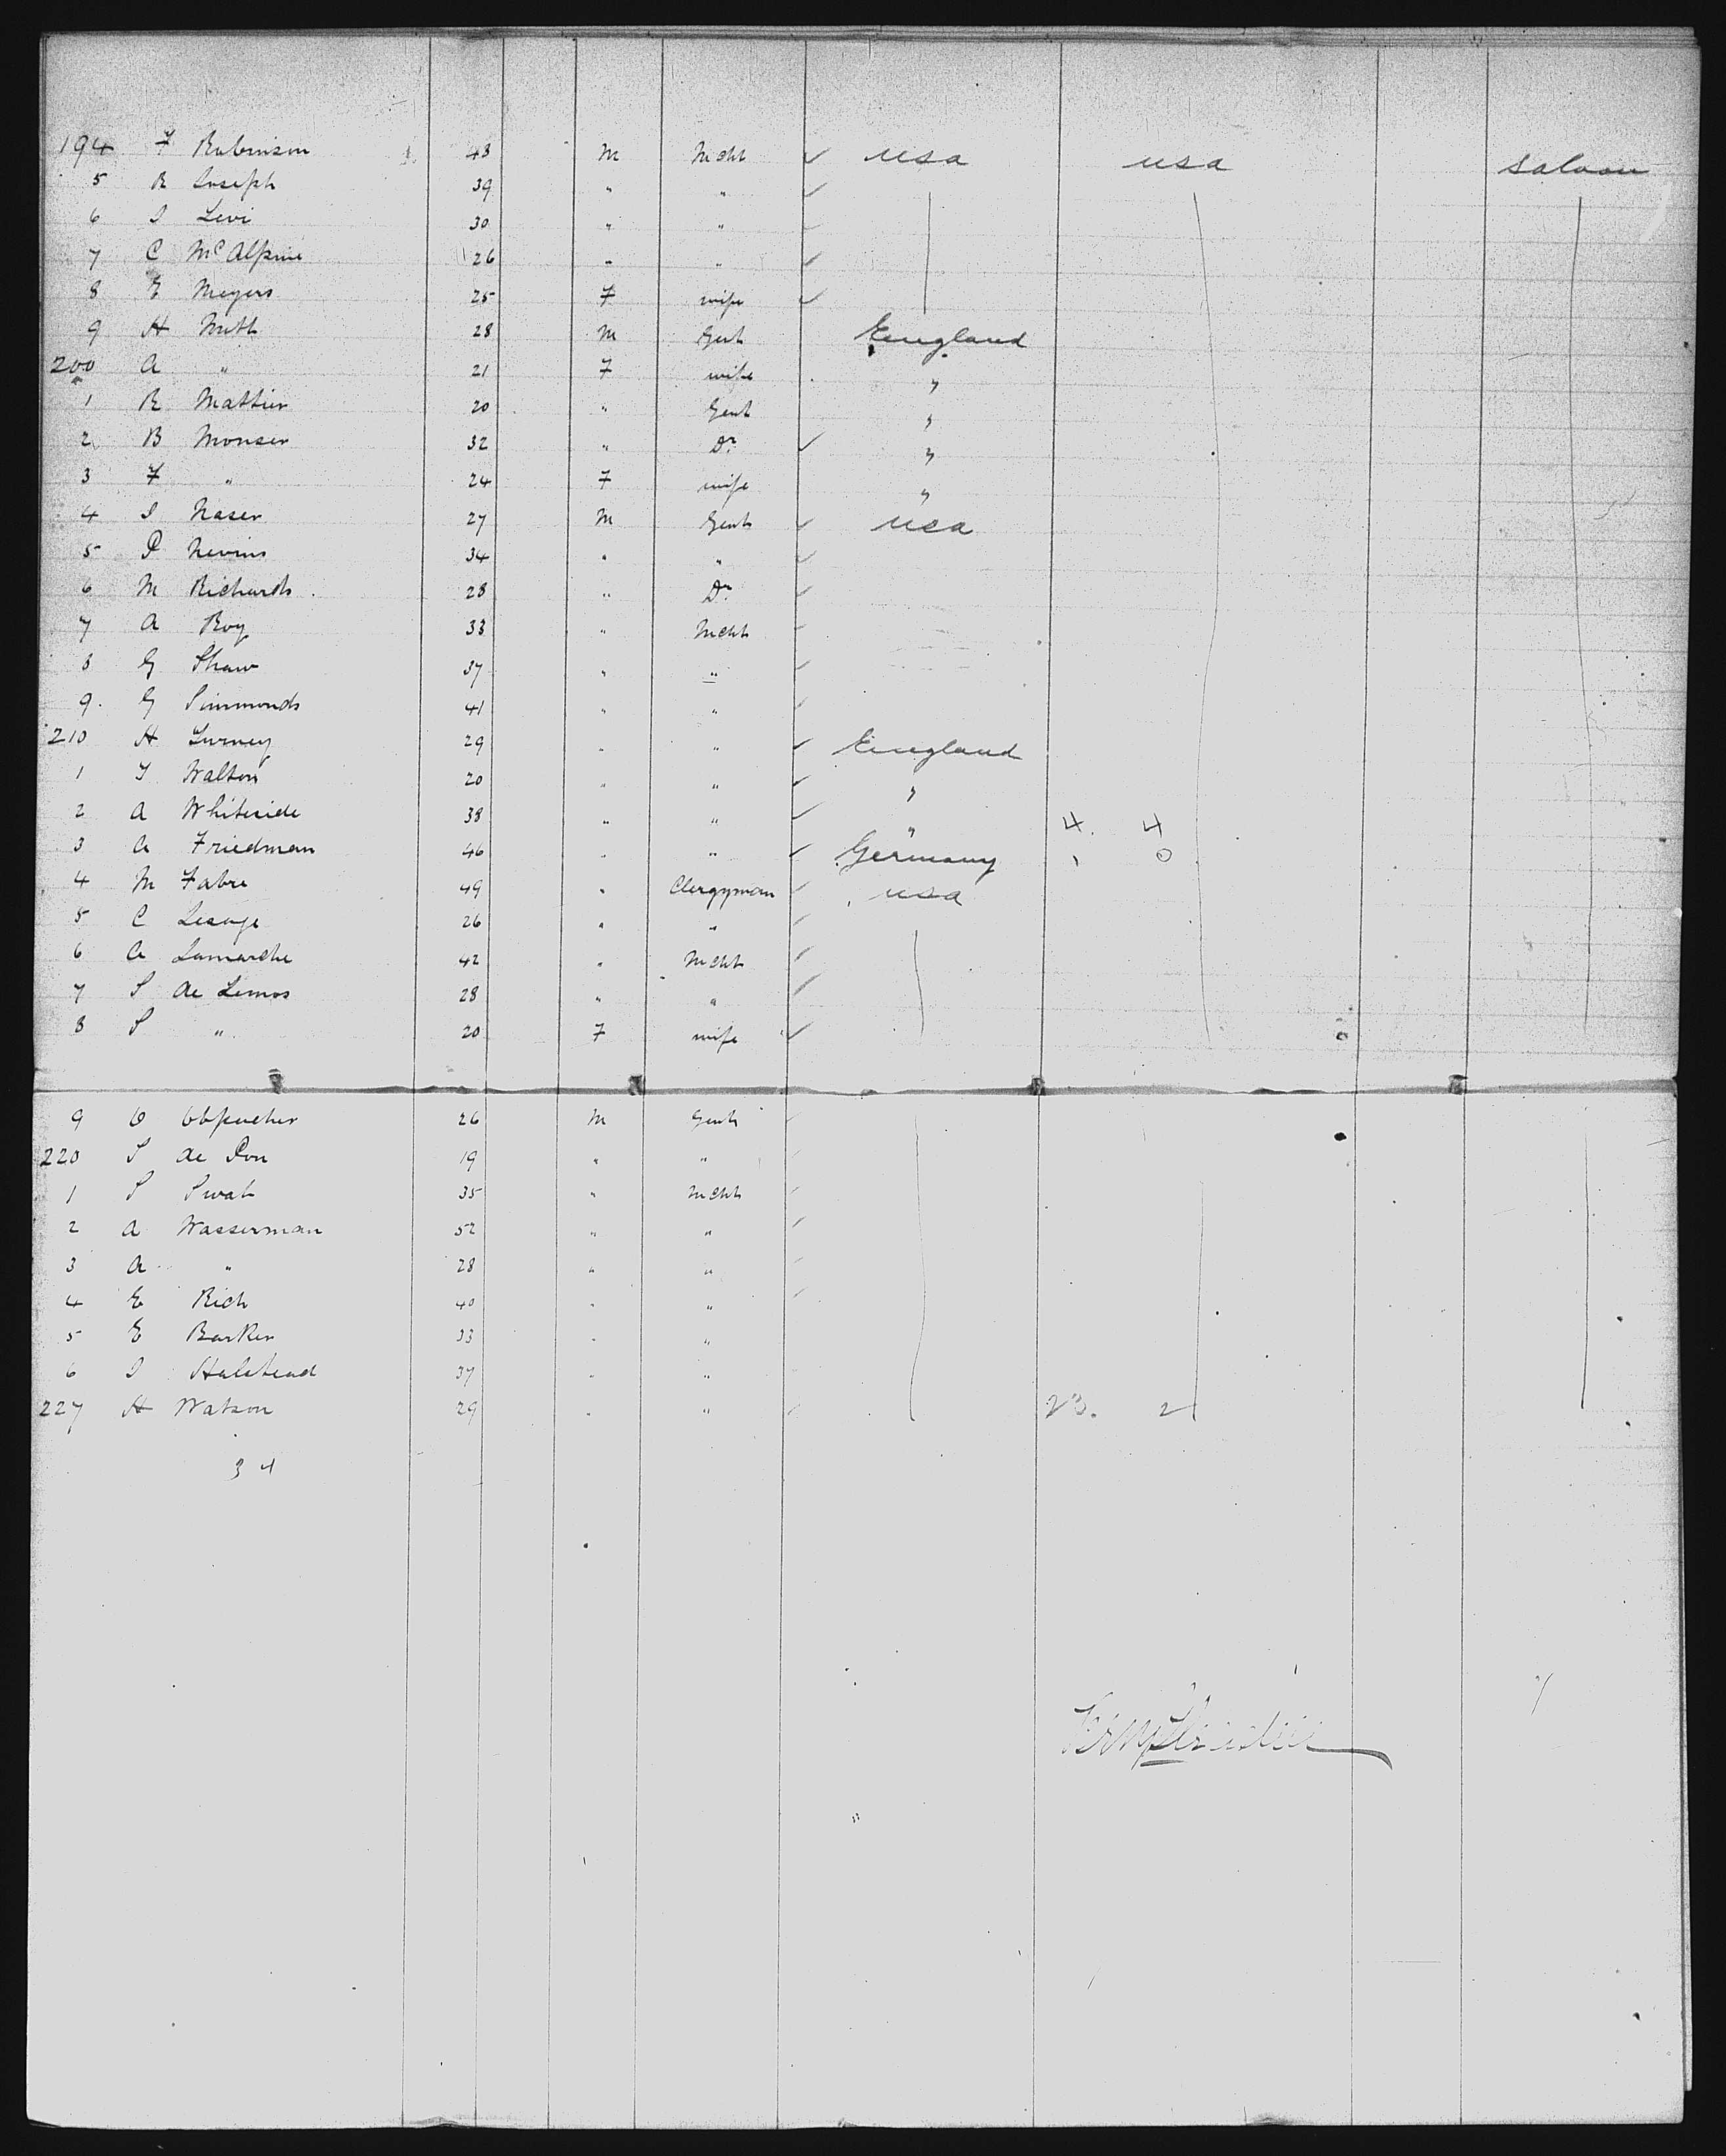 194 F Robinson 43 M Mcht usa usa Saloon
5 R Joseph 39 " "
6 I Levi 30 " "
7 C McAlpine 26 " "
8 E Meyers 25 F wife
9 H 28 M Gent England
200 A " 21 F wife "
1 R 20 " Gent "
2 B Monser 32 " Dr "
3 F " 24 F wife "
4 I Naser 27 M Gent usa
5 P Nevins 34 " "
6 M Richards 28 " Dr
7 A Roy 33 " Mcht
8 G Shaw 37 " "
9 G Simmonds 41 " "
210 H 29 " " England
1 Walton 20 " " "
2 A Whiteside 38 " " " 4. 4
3 A Friedman 46 " " Germany 1 0
4 M Fabre 49 " Clergyman usa
5 C Lesage 26 " "
6 A Lamarche 42 " Mcht
7 S de Lemos 28 " "
8 S " 20 F wife
9 O 26 M Gent
220 S de 19 " "
1 S 35 " Mcht
2 A Wasserman 52 " "
3 A " 28 " "
4 E Rich 40 " "
5 E Barker 33 " "
6 I Halstead 37 " "
227 H Watson 29 " " 23. 2
34